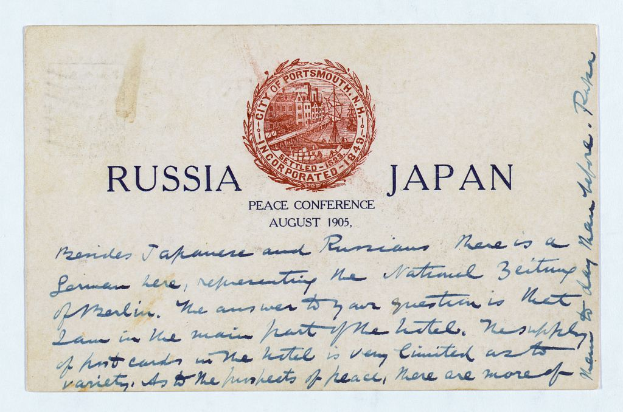 CITY OF PORTSMOUTH, N.H.
SETTLED - 1623
INCORPORATED - 1849
RUSSIA JAPAN
PEACE CONFERENCE
AUGUST 1905.
Besides Japanese and Russians there is a
German here, representing the National Zeitung
of Berlin. The answer to your question is that
I am in the main part of the hotel. The supply
of post cards in the hotel is very limited as to
variety. As to the prospects of peace, there are more of
them to day than before.